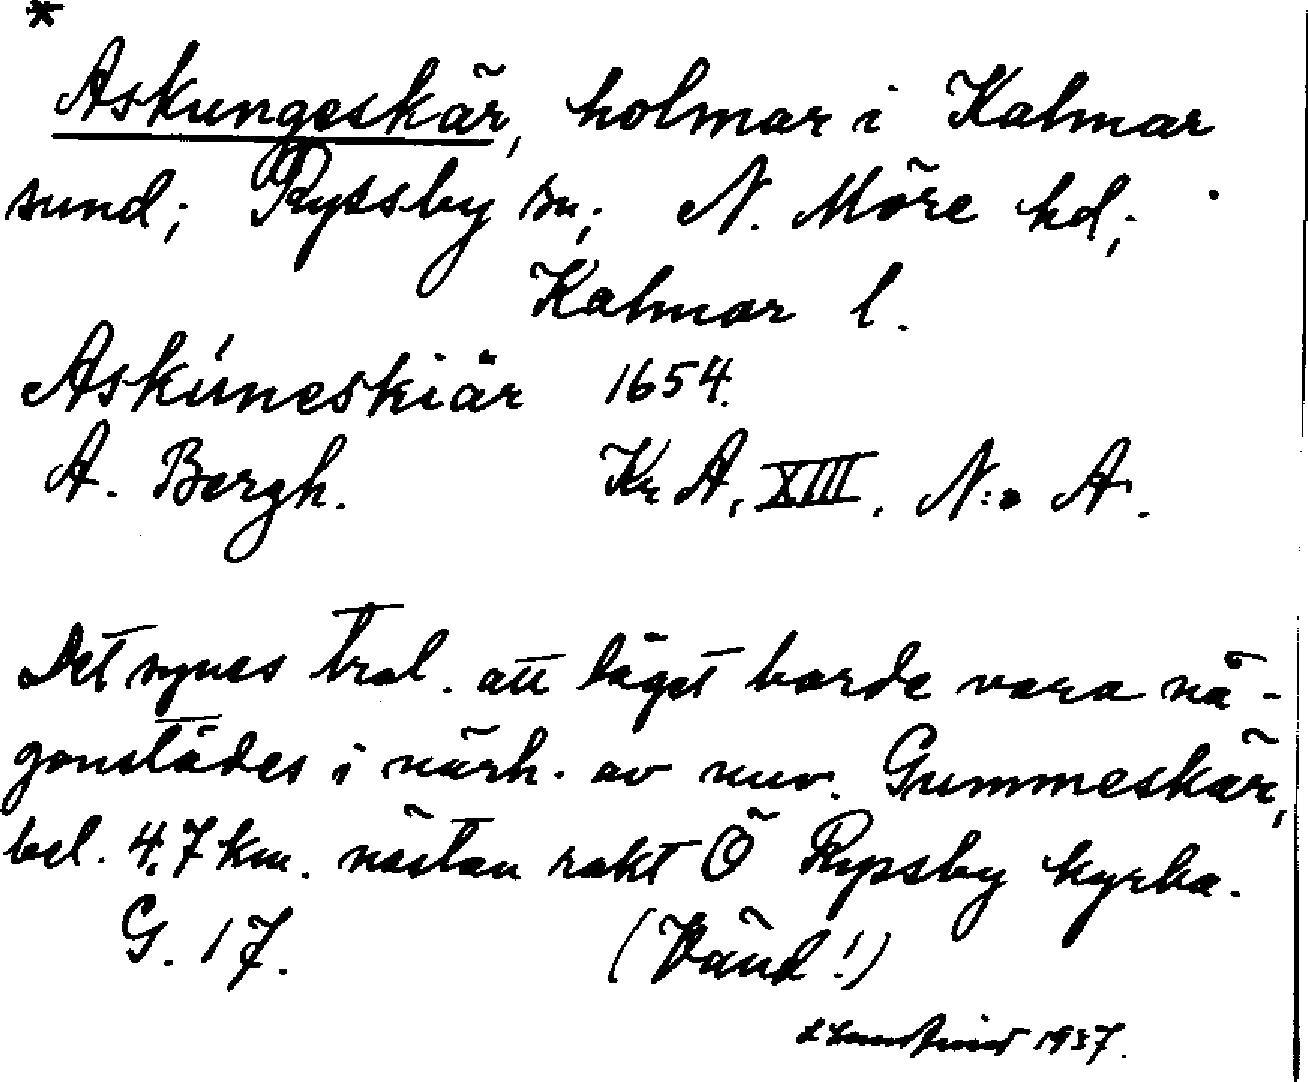 *
Askungeskär, holmar i Kalmar
sund; Ryssby sn; N. Möre hd;
Kalmar l.
Askúneskiär 1654.
A. Bergh. Kr A, XIII. N:o A.
Det synes trol. att läget borde vara nå-
gonstädes i närh. av nuv. Gummeskär,
bel. 4,7 km. nästan rakt Ö Ryssby kyrka.
G. 17. (Vänd!)
1937.